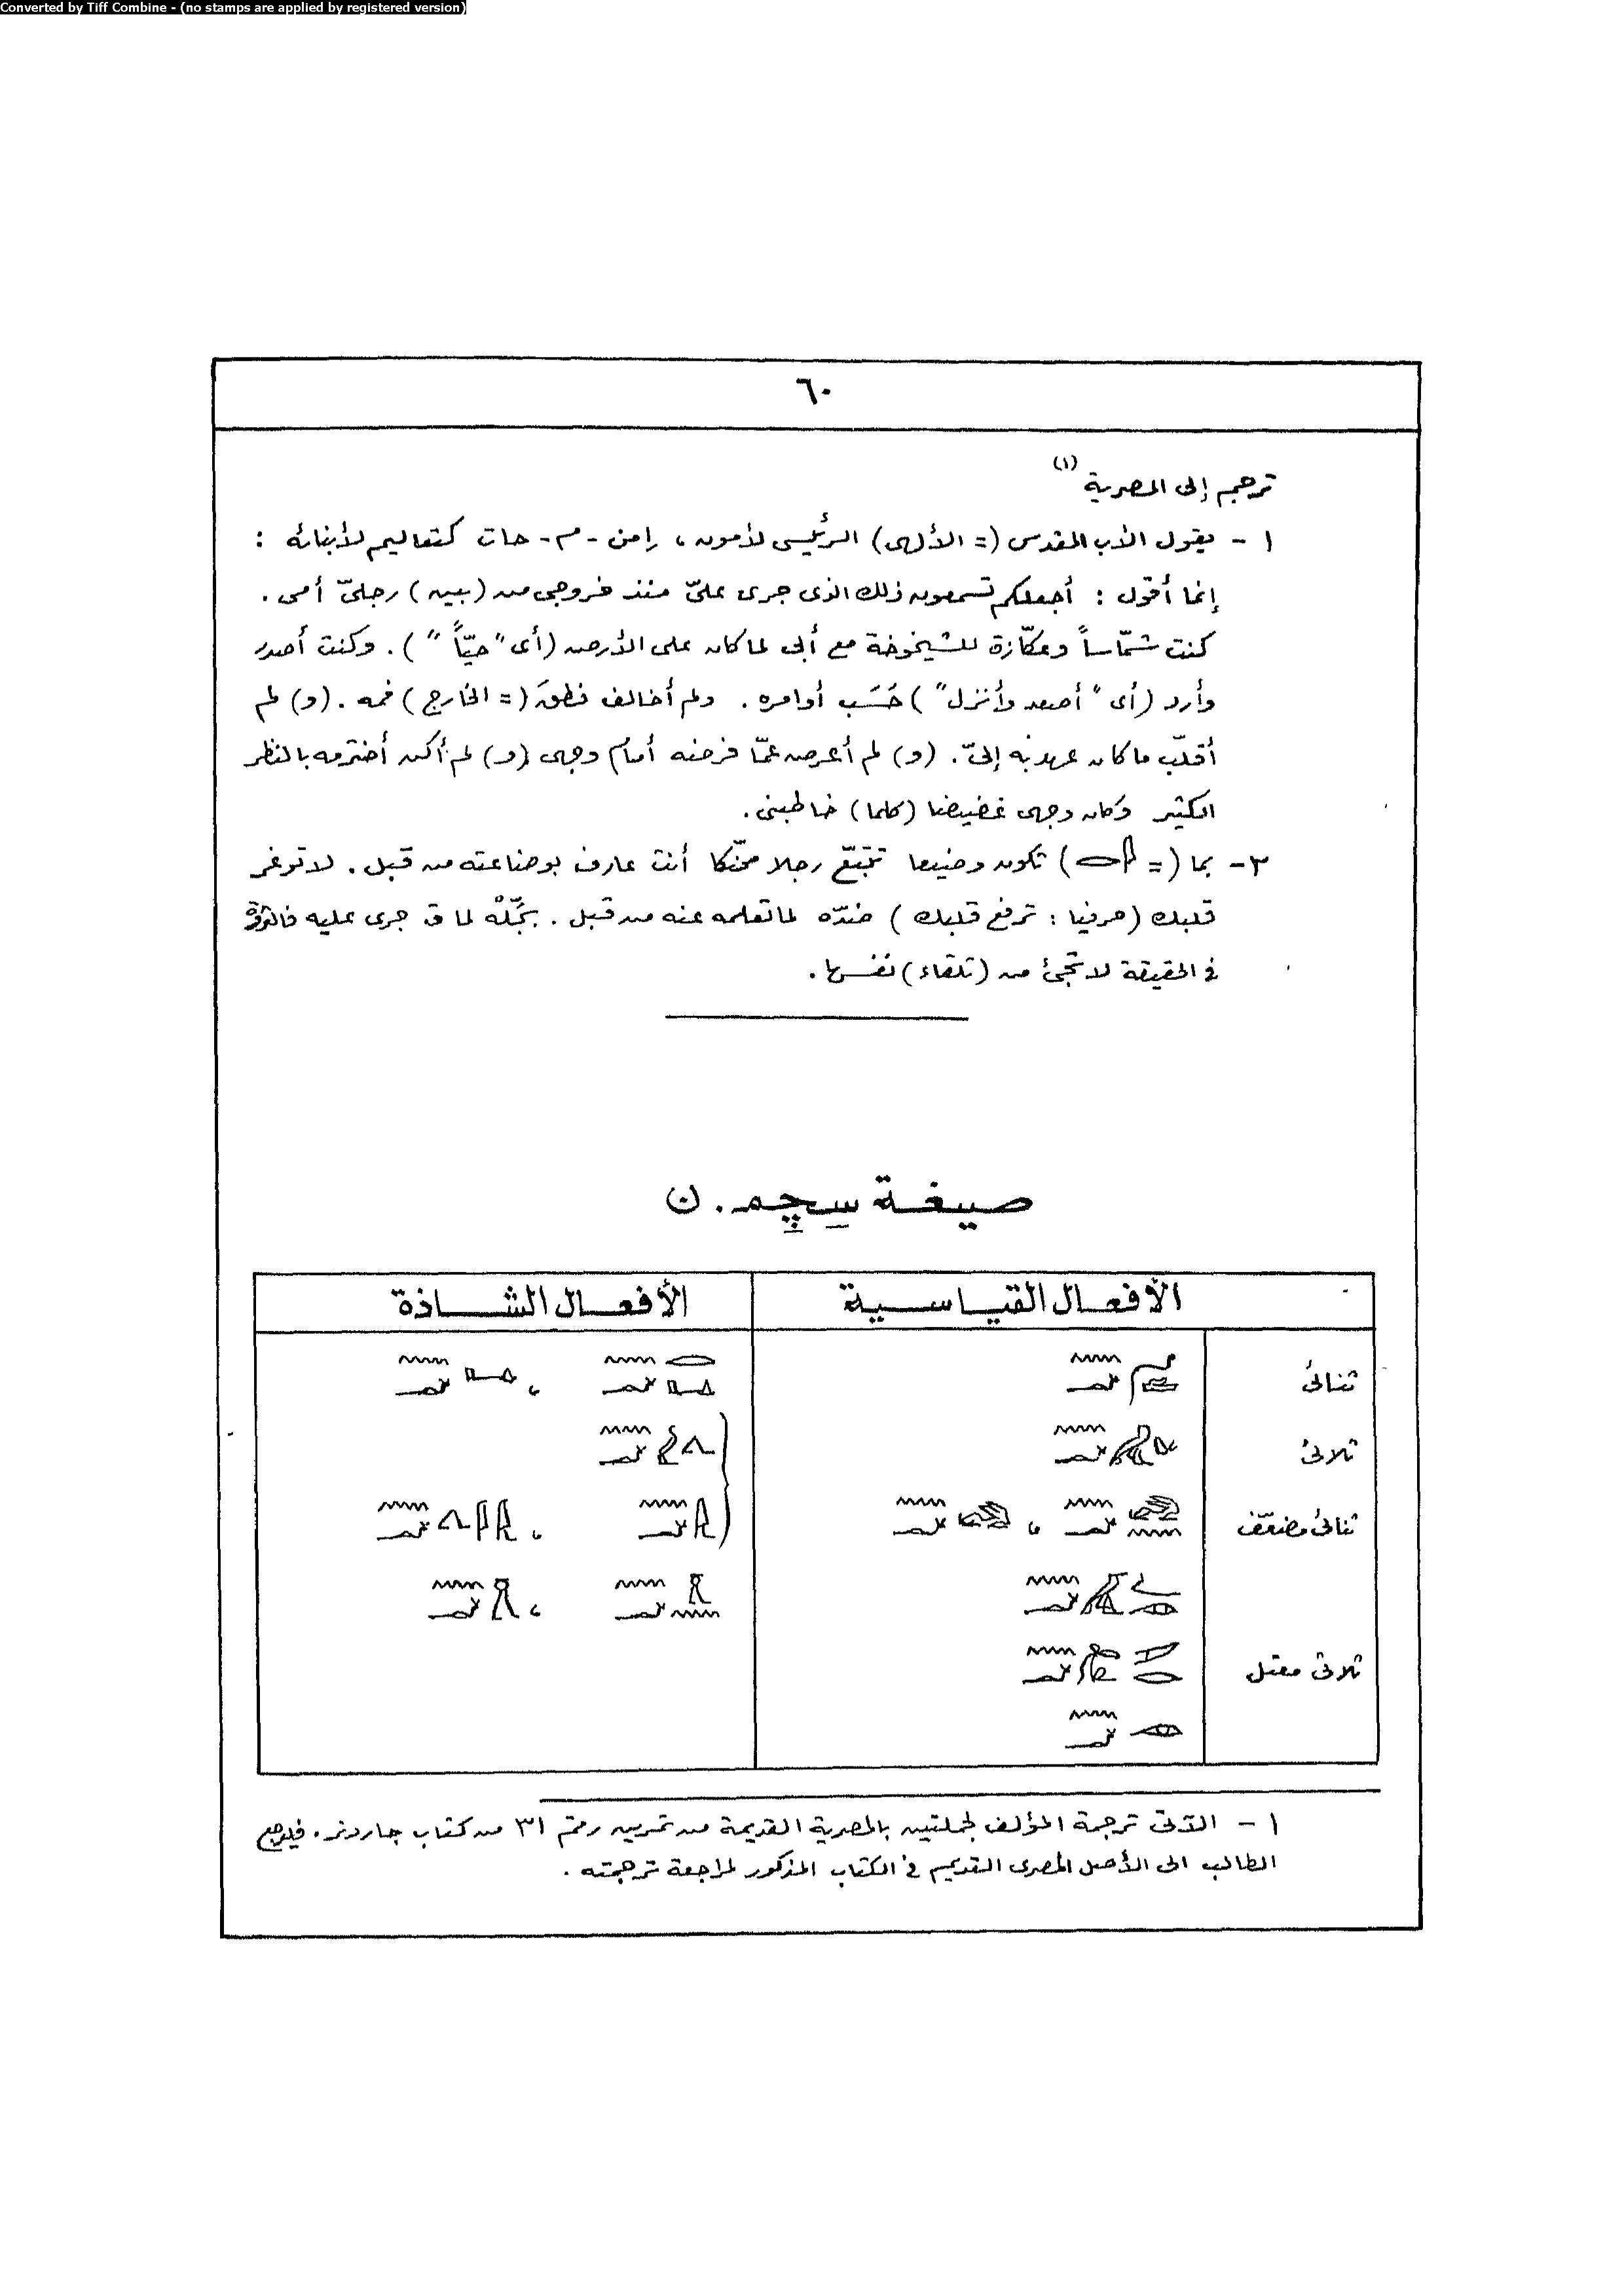 Converted by Tiff Combine - (no stamps are applied by registered version)
٦٠
ترجم إلى المصرية (١)
١ - يقول الأب المقدس (= الألهى) الرئيسى لأمون ، إمن - م - حات كتعاليم لأبنائه :
إنما أقول : أجعلكم تسمعون ذلك الذى جرى علىّ منذ خروجى من (بين) رجلىّ أمى .
كنت شمّاساً وعكّازة للشيخوخة مع أبى لما كان على الأرض (أى "حيّاً") . وكنت أصدر
وأرد (أى "أصعد وأنزل") حَسَب أوامره . ولم أخالف نطقَ (= الخارج) فمه . (و) لم
أقلّب ما كان عهد به إلىّ . (و) لم أعرض عمّا فرضه أمام وجهى (و) لم أكن أخترمه بالنظر
الكثير وكان وجهى غضيضا (كلما) خاطبنى .
٢ - بما (= ) تكون وضيعا تتبّع رجلا محنّكا أنت عارف بوضاعته من قبل . لا توغر
قلبك (حرفيا : ترفع قلبك) ضدّه لما تعلمه عنه من قبل . بجّلْه لما ق جرى عليه فالثروة
فى الحقيقة لا تجئ من (تلقاء) نفسها .
صيغة سچم . ن
الأفعال القياسية
الأفعال الشاذة
ثنائى
ثلاثى
ثنائى مضعّف
ثلاثى معتل
١ - الآتى ترجمة المؤلف لجملتين بالمصرية القديمة من تمرين رقم ٣١ من كتاب جاردنر . فليرجع
الطالب الى الأصل المصرى القديم فى الكتاب المذكور لمراجعة ترجمته .